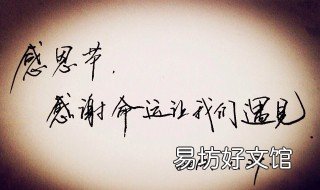 感恩节.
感谢命运让我们遇见
易坊好文馆